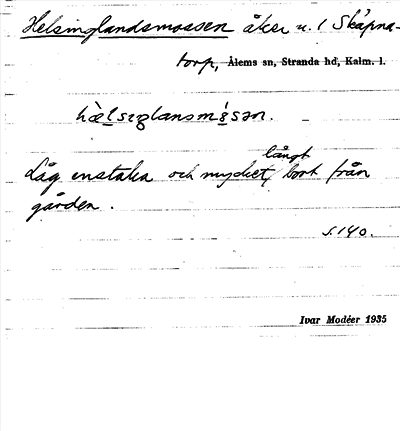 Helsinglandsmossen åker u. 1 Skäpna-
torp, Ålems sn, Stranda hd, Kalm. l.
hælsiglansmåsən.
långt
Låg enstaka och mycket, bort från
gården.
s. 140.
Ivar Modéer 1935